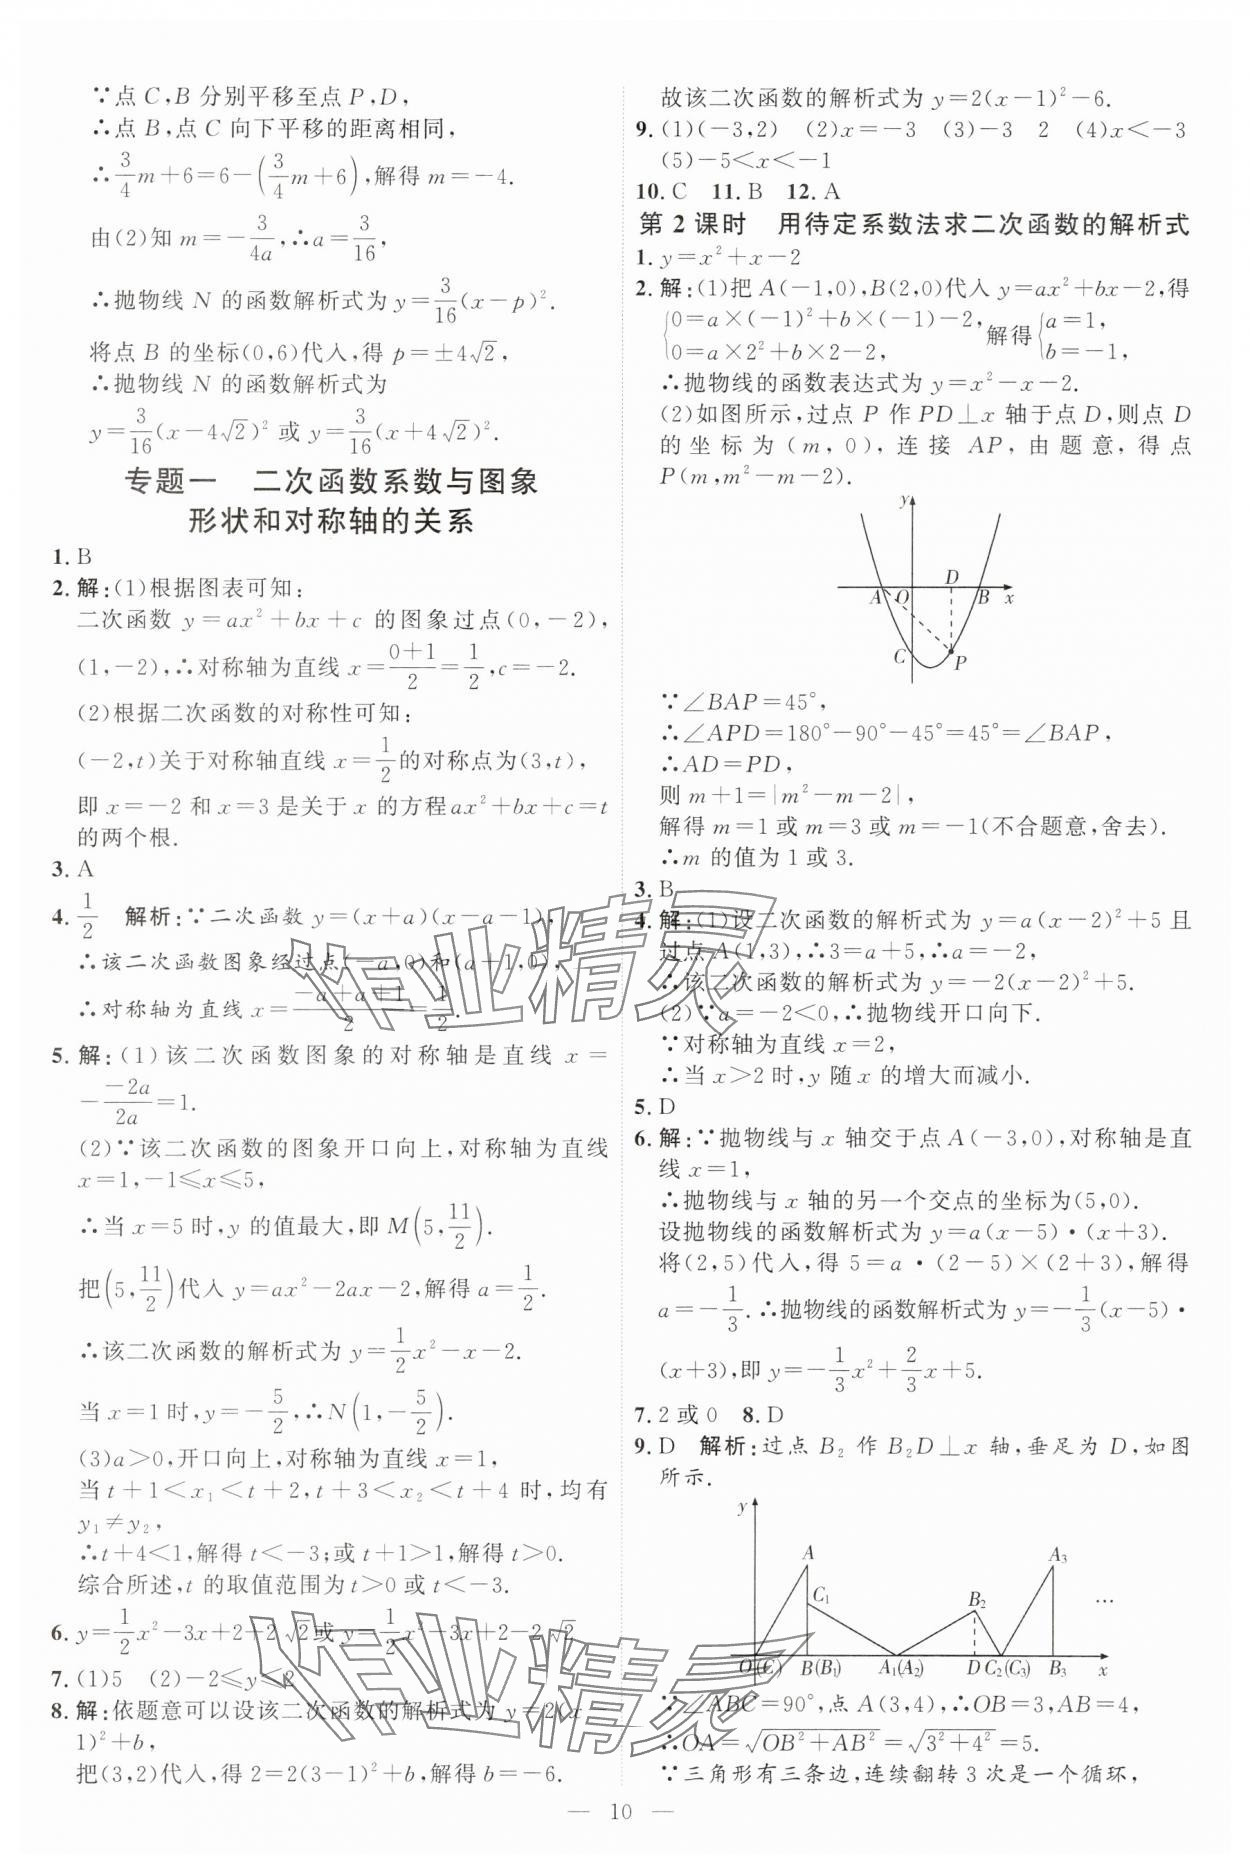 ∵点 C,B 分别平移至点 P,D,
∴点 B,点 C 向下平移的距离相同,
∴3/4m+6=6-(3/4m+6),解得 m=-4.
由(2)知 m=-3/4a,∴a=3/16,
∴抛物线 N 的函数解析式为 y=3/16(x-p)².
将点 B 的坐标(0,6)代入,得 p=±4√2,
∴抛物线 N 的函数解析式为
y=3/16(x-4√2)² 或 y=3/16(x+4√2)².
专题一 二次函数系数与图象
形状和对称轴的关系
1. B
2. 解:(1)根据图表可知:
二次函数 y=ax²+bx+c 的图象过点(0,-2),
(1,-2),∴对称轴为直线 x=0+1/2=1/2,c=-2.
(2)根据二次函数的对称性可知:
(-2,t)关于对称轴直线 x=1/2的对称点为(3,t),
即 x=-2 和 x=3 是关于 x 的方程ax²+bx+c=t
的两个根.
3. A
4. 1/2 解析:∵二次函数 y=(x+a)(x-a-1),
∴该二次函数图象经过点(-a,0)和(a+1,0),
∴对称轴为直线 x=-a+a+1/2=1/2.
5. 解:(1)该二次函数图象的对称轴是直线 x=
--2a/2a=1.
(2)∵该二次函数的图象开口向上,对称轴为直线
x=1,-1≤x≤5,
∴当 x=5 时,y 的值最大,即 M(5,11/2).
把(5,11/2)代入 y=ax²-2ax-2,解得 a=1/2.
∴该二次函数的解析式为 y=1/2x²-x-2.
当 x=1 时,y=-5/2,∴N(1,-5/2).
(3)a>0,开口向上,对称轴为直线 x=1,
当 t+1<x₁<t+2,t+3<x₂<t+4 时,均有
y₁≠y₂,
∴t+4<1,解得 t<-3;或 t+1>1,解得 t>0.
综合所述,t 的取值范围为 t>0 或 t<-3.
6. y=1/2x²-3x+2+2√2或 y=1/2x²-3x+2-2√2
7. (1)5 (2)-2≤y≤2
8. 解:依题意可以设该二次函数的解析式为 y=2(x-
1)²+b,
把(3,2)代入,得 2=2(3-1)²+b,解得 b=-6.
故该二次函数的解析式为 y=2(x-1)²-6.
9. (1)(-3,2) (2)x=-3 (3)-3 2 (4)x<-3
(5)-5<x<-1
10. C 11. B 12. A
第 2 课时 用待定系数法求二次函数的解析式
1. y=x²+x-2
2. 解:(1)把 A(-1,0),B(2,0)代入 y=ax²+bx-2,得
{0=a×(-1)²+b×(-1)-2, 解得{a=1,
0=a×2²+b×2-2, b=-1,
∴抛物线的函数表达式为 y=x²-x-2.
(2)如图所示,过点 P 作 PD⊥x 轴于点 D,则点 D
的坐标为(m,0),连接 AP,由题意,得点
P(m,m²-m-2).
y
D
A O B x
C P
∵∠BAP=45°,
∴∠APD=180°-90°-45°=45°=∠BAP,
∴AD=PD,
则 m+1=|m²-m-2|,
解得 m=1 或 m=3 或 m=-1(不合题意,舍去).
∴m 的值为 1 或 3.
3. B
4. 解:(1)设二次函数的解析式为 y=a(x-2)²+5 且
过点 A(1,3),∴3=a+5,∴a=-2,
∴该二次函数的解析式为 y=-2(x-2)²+5.
(2)∵a=-2<0,∴抛物线开口向下.
∵对称轴为直线 x=2,
∴当 x>2 时,y 随 x 的增大而减小.
5. D
6. 解:∵抛物线与 x 轴交于点 A(-3,0),对称轴是直
线 x=1,
∴抛物线与 x 轴的另一个交点的坐标为(5,0).
设抛物线的函数解析式为 y=a(x-5)·(x+3).
将(2,5)代入,得 5=a·(2-5)×(2+3),解得
a=-1/3.∴抛物线的函数解析式为 y=-1/3(x-5)·
(x+3),即 y=-1/3x²+2/3x+5.
7. 2 或 0 8. D
9. D 解析:过点 B₂ 作 B₂D⊥x 轴,垂足为 D,如图
所示.
y
A A₃
C₁ B₂ …
O(C) B(B₁) A₁(A₂) D C₂(C₃) B₃ x
∵∠ABC=90°,点 A(3,4),∴OB=3,AB=4,
∴OA=√OB²+AB²=√3²+4²=5.
∵三角形有三条边,连续翻转 3 次是一个循环,
— 10 —
作业精灵
作业精灵